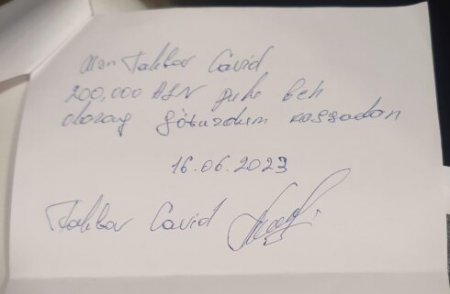 Mən Talıbov Cavid
200,000 AZN pulu beh
olaraq götürdüm kassadan
16.06.2023
Talıbov Cavid